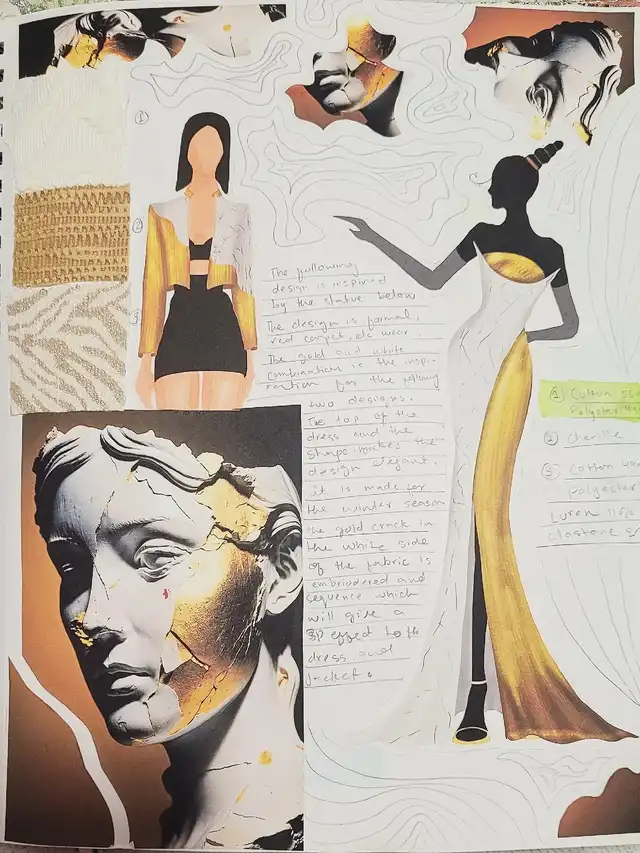 ①
②
3
The following
design is inspired
by the statue below
The design is formal,
red carpet, etc wear.
The gold and white
combination is the inspi-
ration for the following
two designs.
The top of the
dress and the
shape makes the
design elegant.
it is made for
the winter season
the gold crack in
the white side
of the fabric is
embriodered and
sequence which
will give a
3D effect to the
dress and
Jacket.
① Cotton
Polyster
② Chenille
③ Cotton
polyester
Lurex 11%
elastane